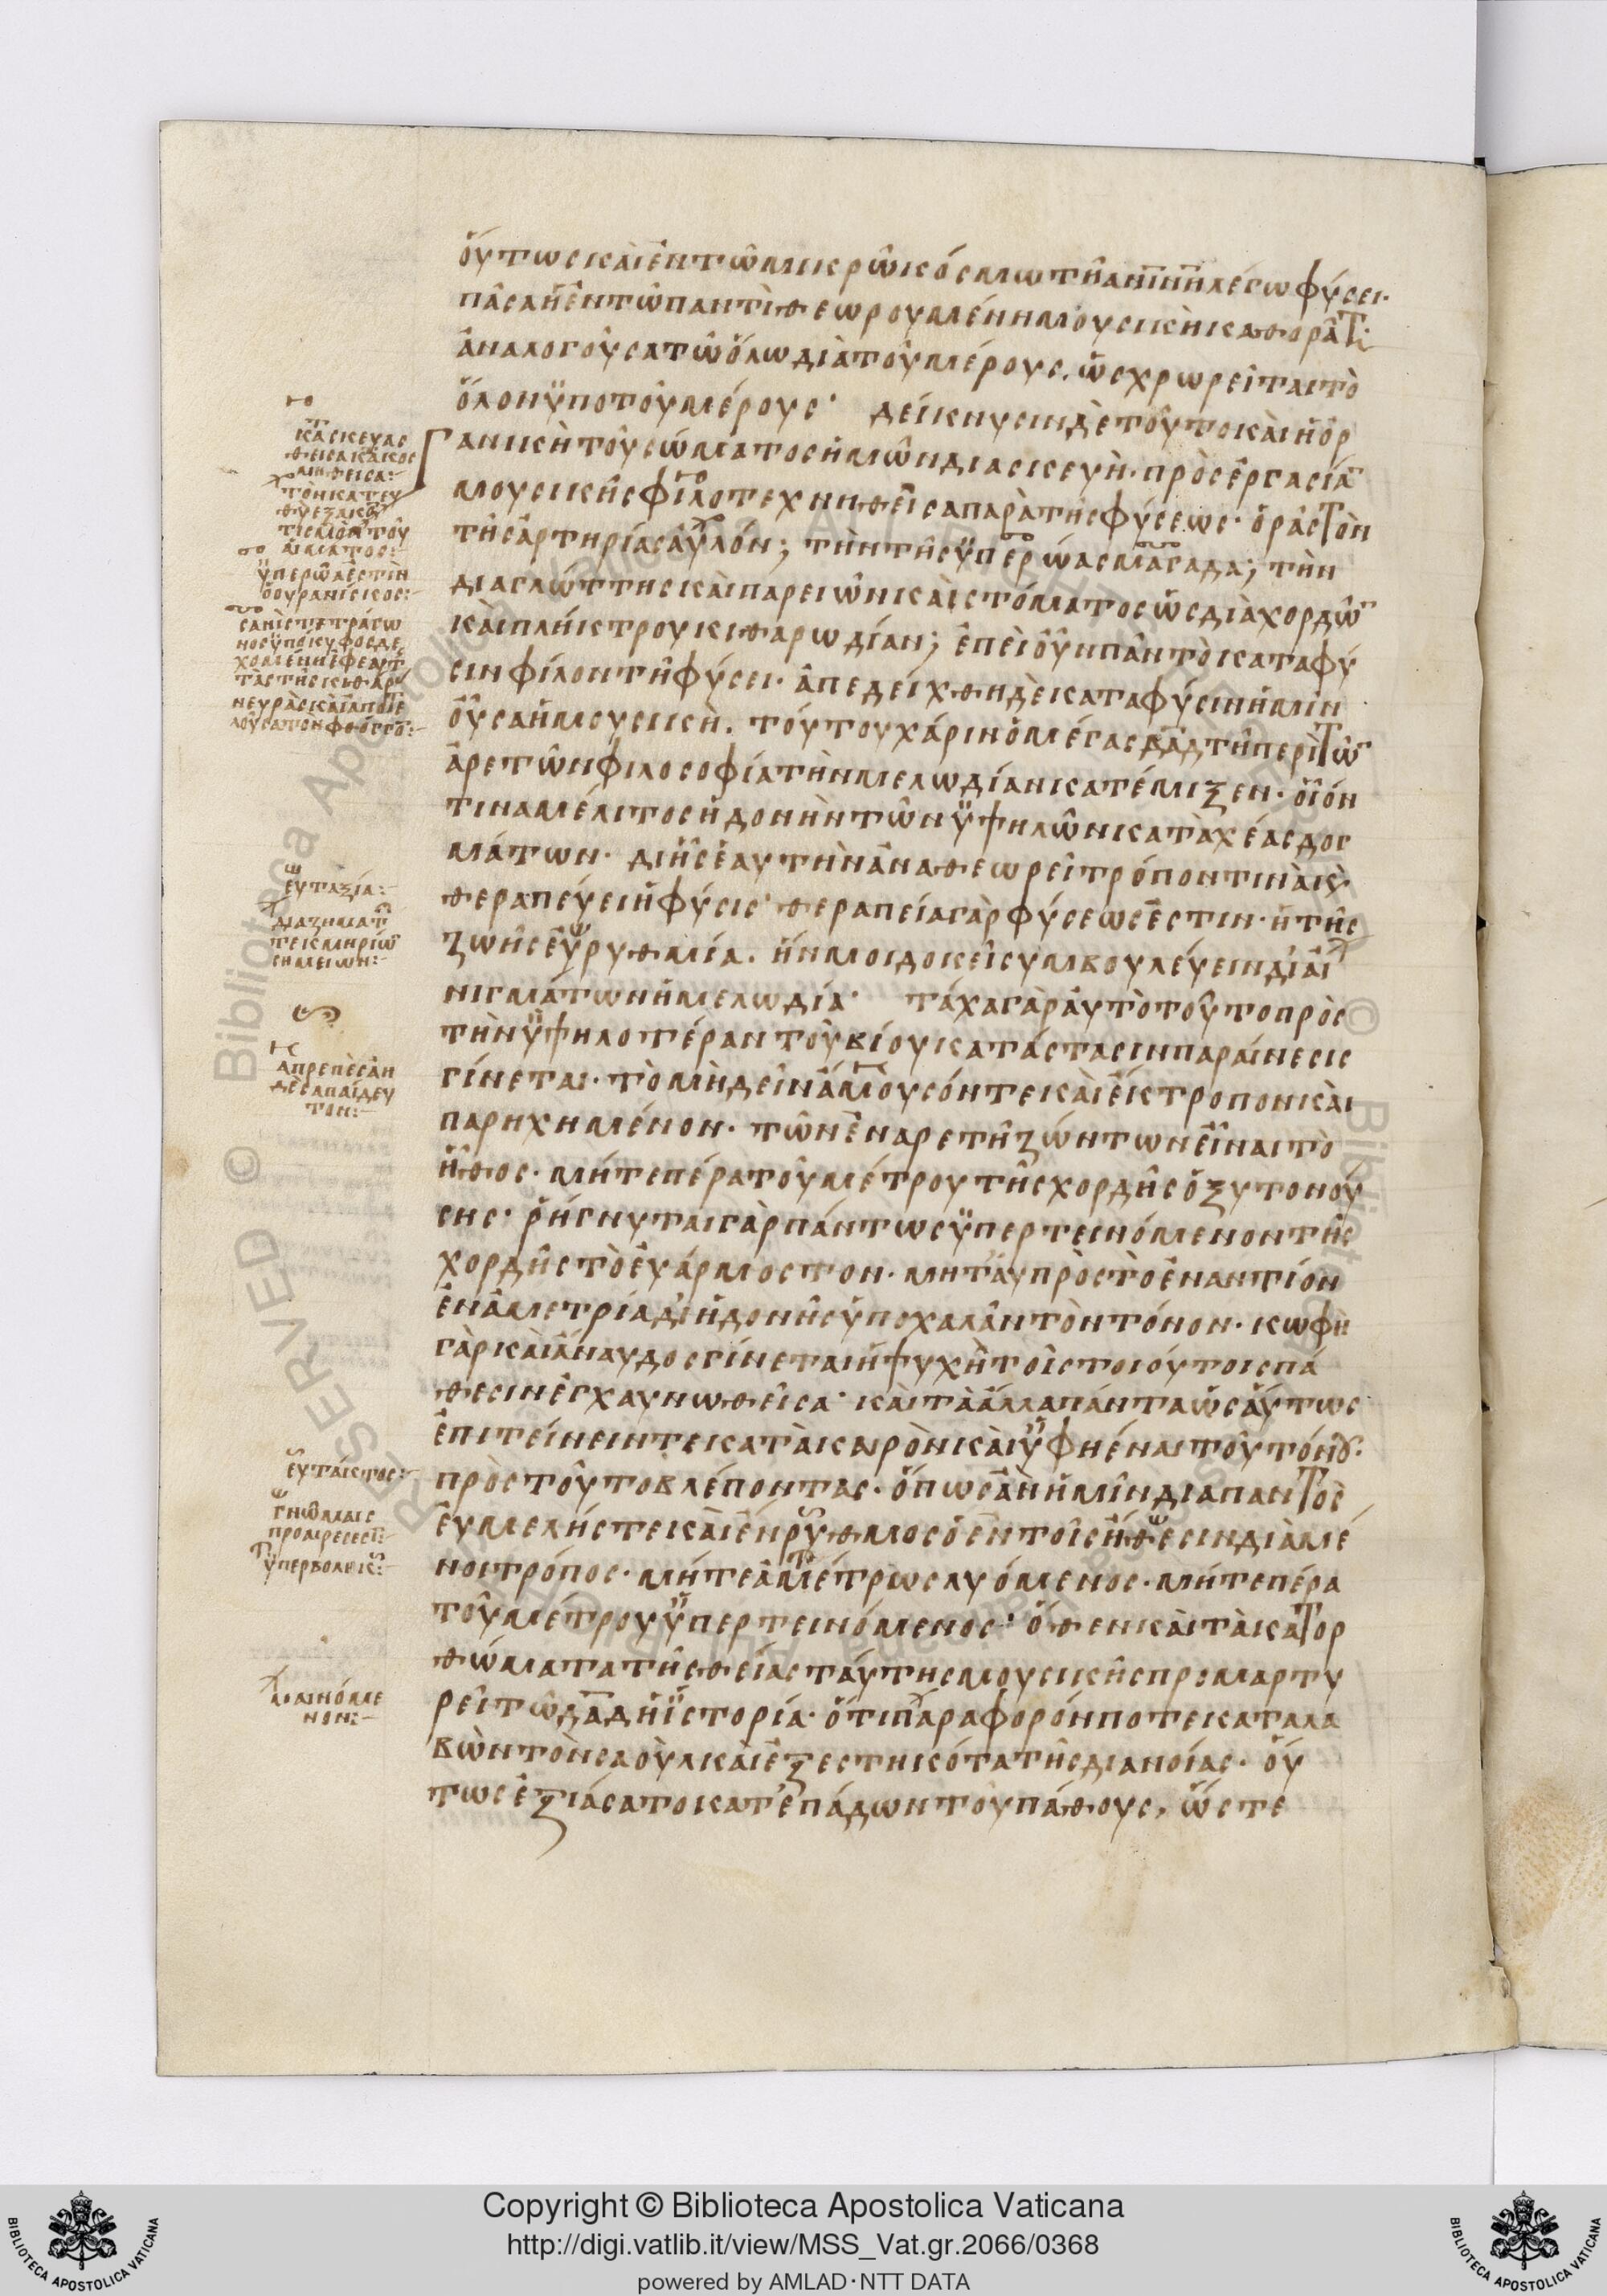 ὅυτως καὶ ἐν τῶ μικρῶ κόσμω τῆ ἀνίνη λέγω φύσει·
πᾶσα ἡ ἐν τῶ παντὶ θεωρουμένη μουσικὴ καθορᾶται·
ἀναλογοῦσα τῶ ὅλω διὰ τοῦ μέρους. ὡς χωρεῖται τὸ
ὅλον ὑπὸ τοῦ μέρους· δείκνυσιν δὲ τοῦτο καὶ ἡ ὀρ
γανικὴ τοῦ σώματος ἡμῶν διασκευὴ· πρὸς ἐργασίαν
μουσικῆς φιλοτεχνηθεῖσα παρὰ τῆς φύσεως· ὁρᾶς τὸν
τῆς ἀρτηρίας ἀυλόν; τὴν τῆς ὑπερώας μαγάδα; τὴν
διαγλώττης καὶ παρειῶν καὶ στόματος ὡς διὰ χορδῶν
καὶ πλήκτρου κιθαρωδίαν; ἐπεὶ οὖν πᾶν τὸ κατα φύ
σιν φίλον τῆ φύσει· ἀπεδείχθη δὲ κατα φύσιν ἡμῖν
οὖσα ἡ μουσικὴ. τούτου χάριν ὁ μέγας δᾱδ τῆ περὶ τῶν
ἀρετῶν φιλοσοφία τὴν μελωδίαν κατέμιξεν· οἷόν
τινα μέλιτος ἡδονὴν τῶν ὑψηλῶν καταχέας δογ
μάτων· δι ἧς ἑαυτὴν ἀναθεωρεῖ τρόπον τινὰ κ
θεραπεύει ἡ φύσις· θεραπεία γὰρ φύσεως ἐστιν· ἡ τῆς
ζωῆς ἐυρυθμία. ἥν μοι δοκεῖ συμβουλεύειν δι ἀι
νιγμάτων ἡ μελωδία· τάχα γὰρ ἀυτὸ τοῦτο πρὸς
τὴν ὑψηλοτέραν τοῦ βίου κατάστασιν παράινεσις
γίνεται· τὸ μὴ δεῖν ἄμουσόν τε καὶ ἔκτροπον καὶ
παρηχημένον· τῶν ἐν ἀρετῆ ζώντων εἶναι τὸ
ἦθος· μήτε πέρα τοῦ μέτρου τῆς χορδῆς ὀξυτονού
σης· ῥήγνυται γὰρ πάντως ὑπερτεινόμενον τῆς
χορδῆς τὸ ἐυάρμοστον· μητ ἀυ πρὸς τὸ ἐναντίον
ἐν ἀμετρία δι ἡδονῆς ὑποχαλᾶν τὸν τόνον· κωφὴ
γὰρ καὶ ἄναυδος γίνεται ἡ ψυχὴ τοῖς τοιούτοις πά
θεσιν ἐγχαυνωθεῖσα· καὶ τὰ ἄλλα πάντα ὡσάυτως
ἐπιτείνειν τε κατὰ καιρὸν καὶ ὑφηέναι τοῦ τόνου·
πρὸς τοῦτο βλέποντας· ὅπως ἂν ἡμῖν διαπαντὸς
ἐυμελής τε καὶ ἔνρυθμος ὁ ἐν τοῖς ἤθεσιν διὰ μέ
νοι τρόπος· μήτε ἀμέτρως λυόμενος· μήτε πέρα
τοῦ μέτρου ὑπερτεινόμενος· ὅθεν καὶ τὰ κατορ
θώματα τῆς θείας ταύτης μουσικῆς προμαρτυ
ρεῖ τῶ δᾱδ ἡ ἱστορία· ὅτι παράφορόν ποτε καταλα
βὼν τὸν σαοὺλ καὶ ἐξεστηκότα τῆς διανοίας· ὅυ
τως ἐξιάσατο κατ ἐπάδων τοῦ πάθους, ὥστε
κατασκευασ
θεισα κα κοσ
μηθεισα:
ὑπερῶα ἐστὶν
ὁ ουρανίσκος:
ἐυταξία:
διαζηματ
τεκμηρίων
σημειων:
ἀπρεπὲς ἀη
δὲς ἀπαίδευ
τον:
ἐυτάκτος:
γνώμαις
προαιρεσεσι:
ὑπερβολικ:
μαινόμε
νον:
RESERVED © Biblioteca Apostolica Vaticana
Copyright © Biblioteca Apostolica Vaticana
http://digi.vatlib.it/view/MSS_Vat.gr.2066/0368
powered by AMLAD·NTT DATA
BIBLIOTECA APOSTOLICA VATICANA
BIBLIOTECA APOSTOLICA VATICANA